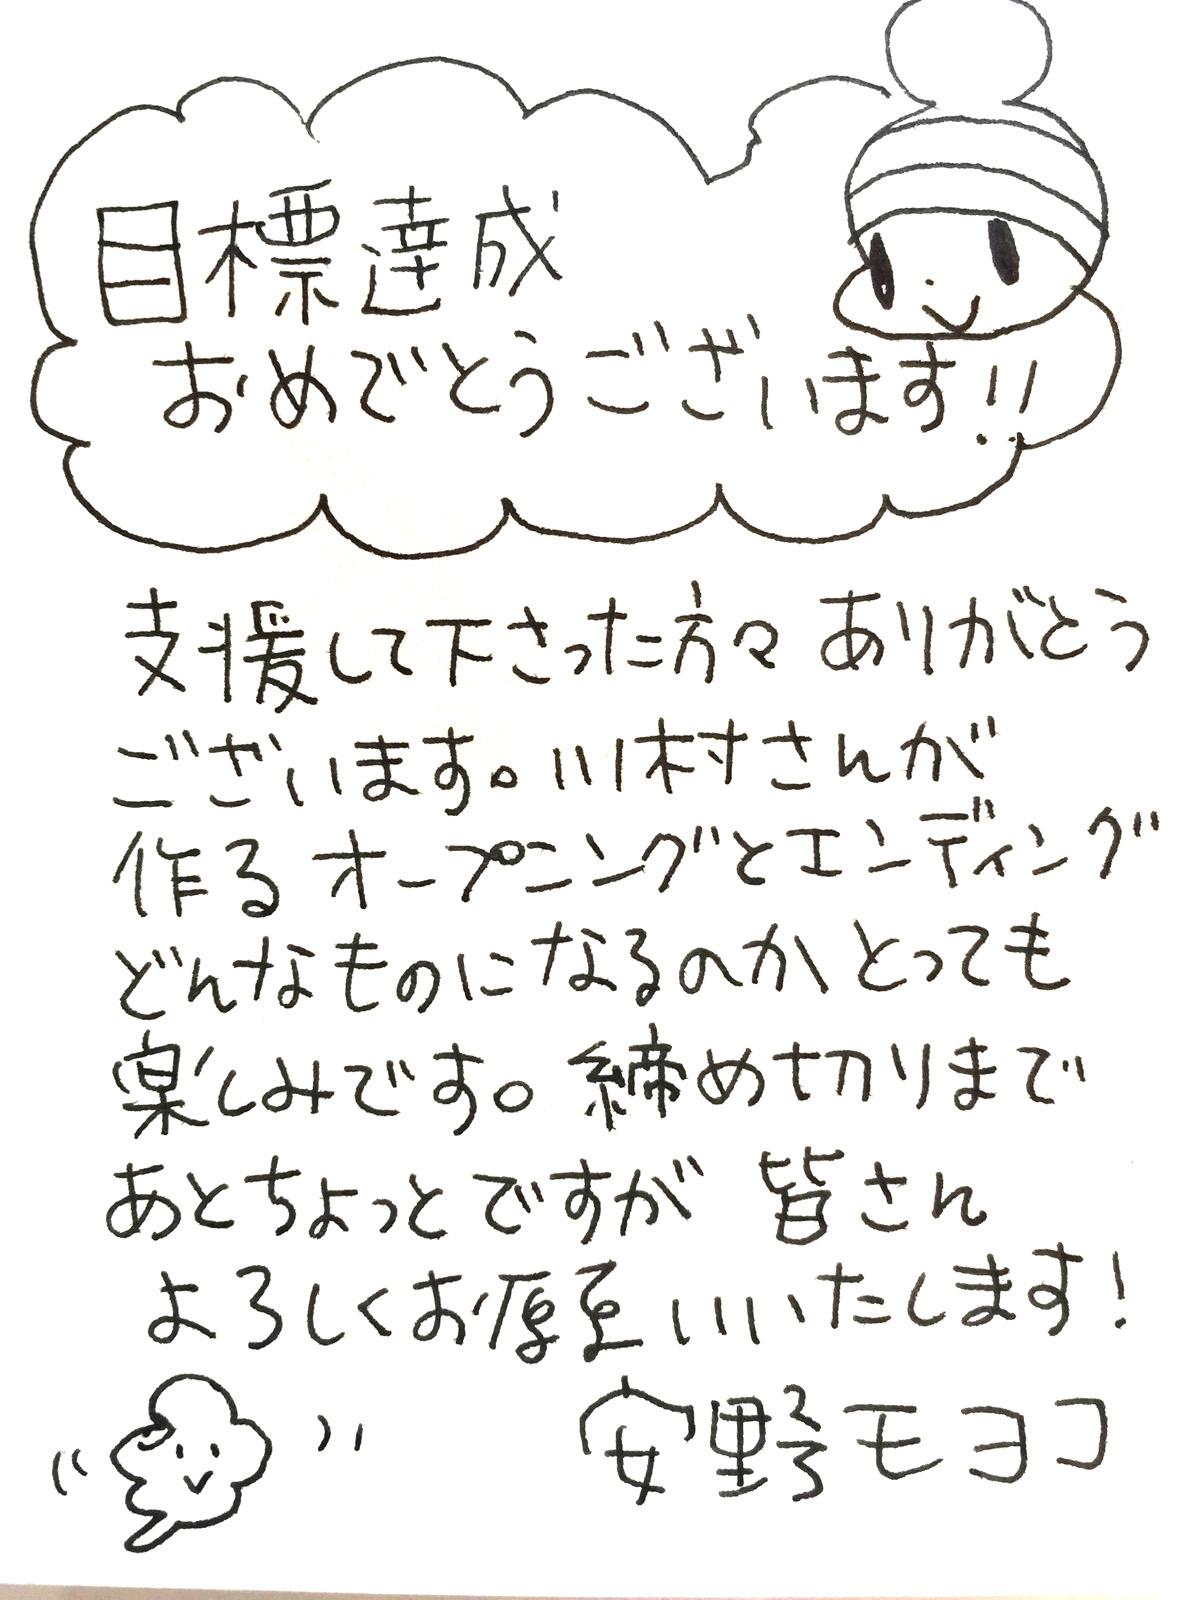 目標達成
おめでとうございます!!
支援して下さった方々 ありがとう
ございます。川村さんが
作る オープニングとエンディング
どんなものになるのか とっても
楽しみです。締め切りまで
あとちょっとですが 皆さん
よろしくお願いいたします!
安野モヨコ